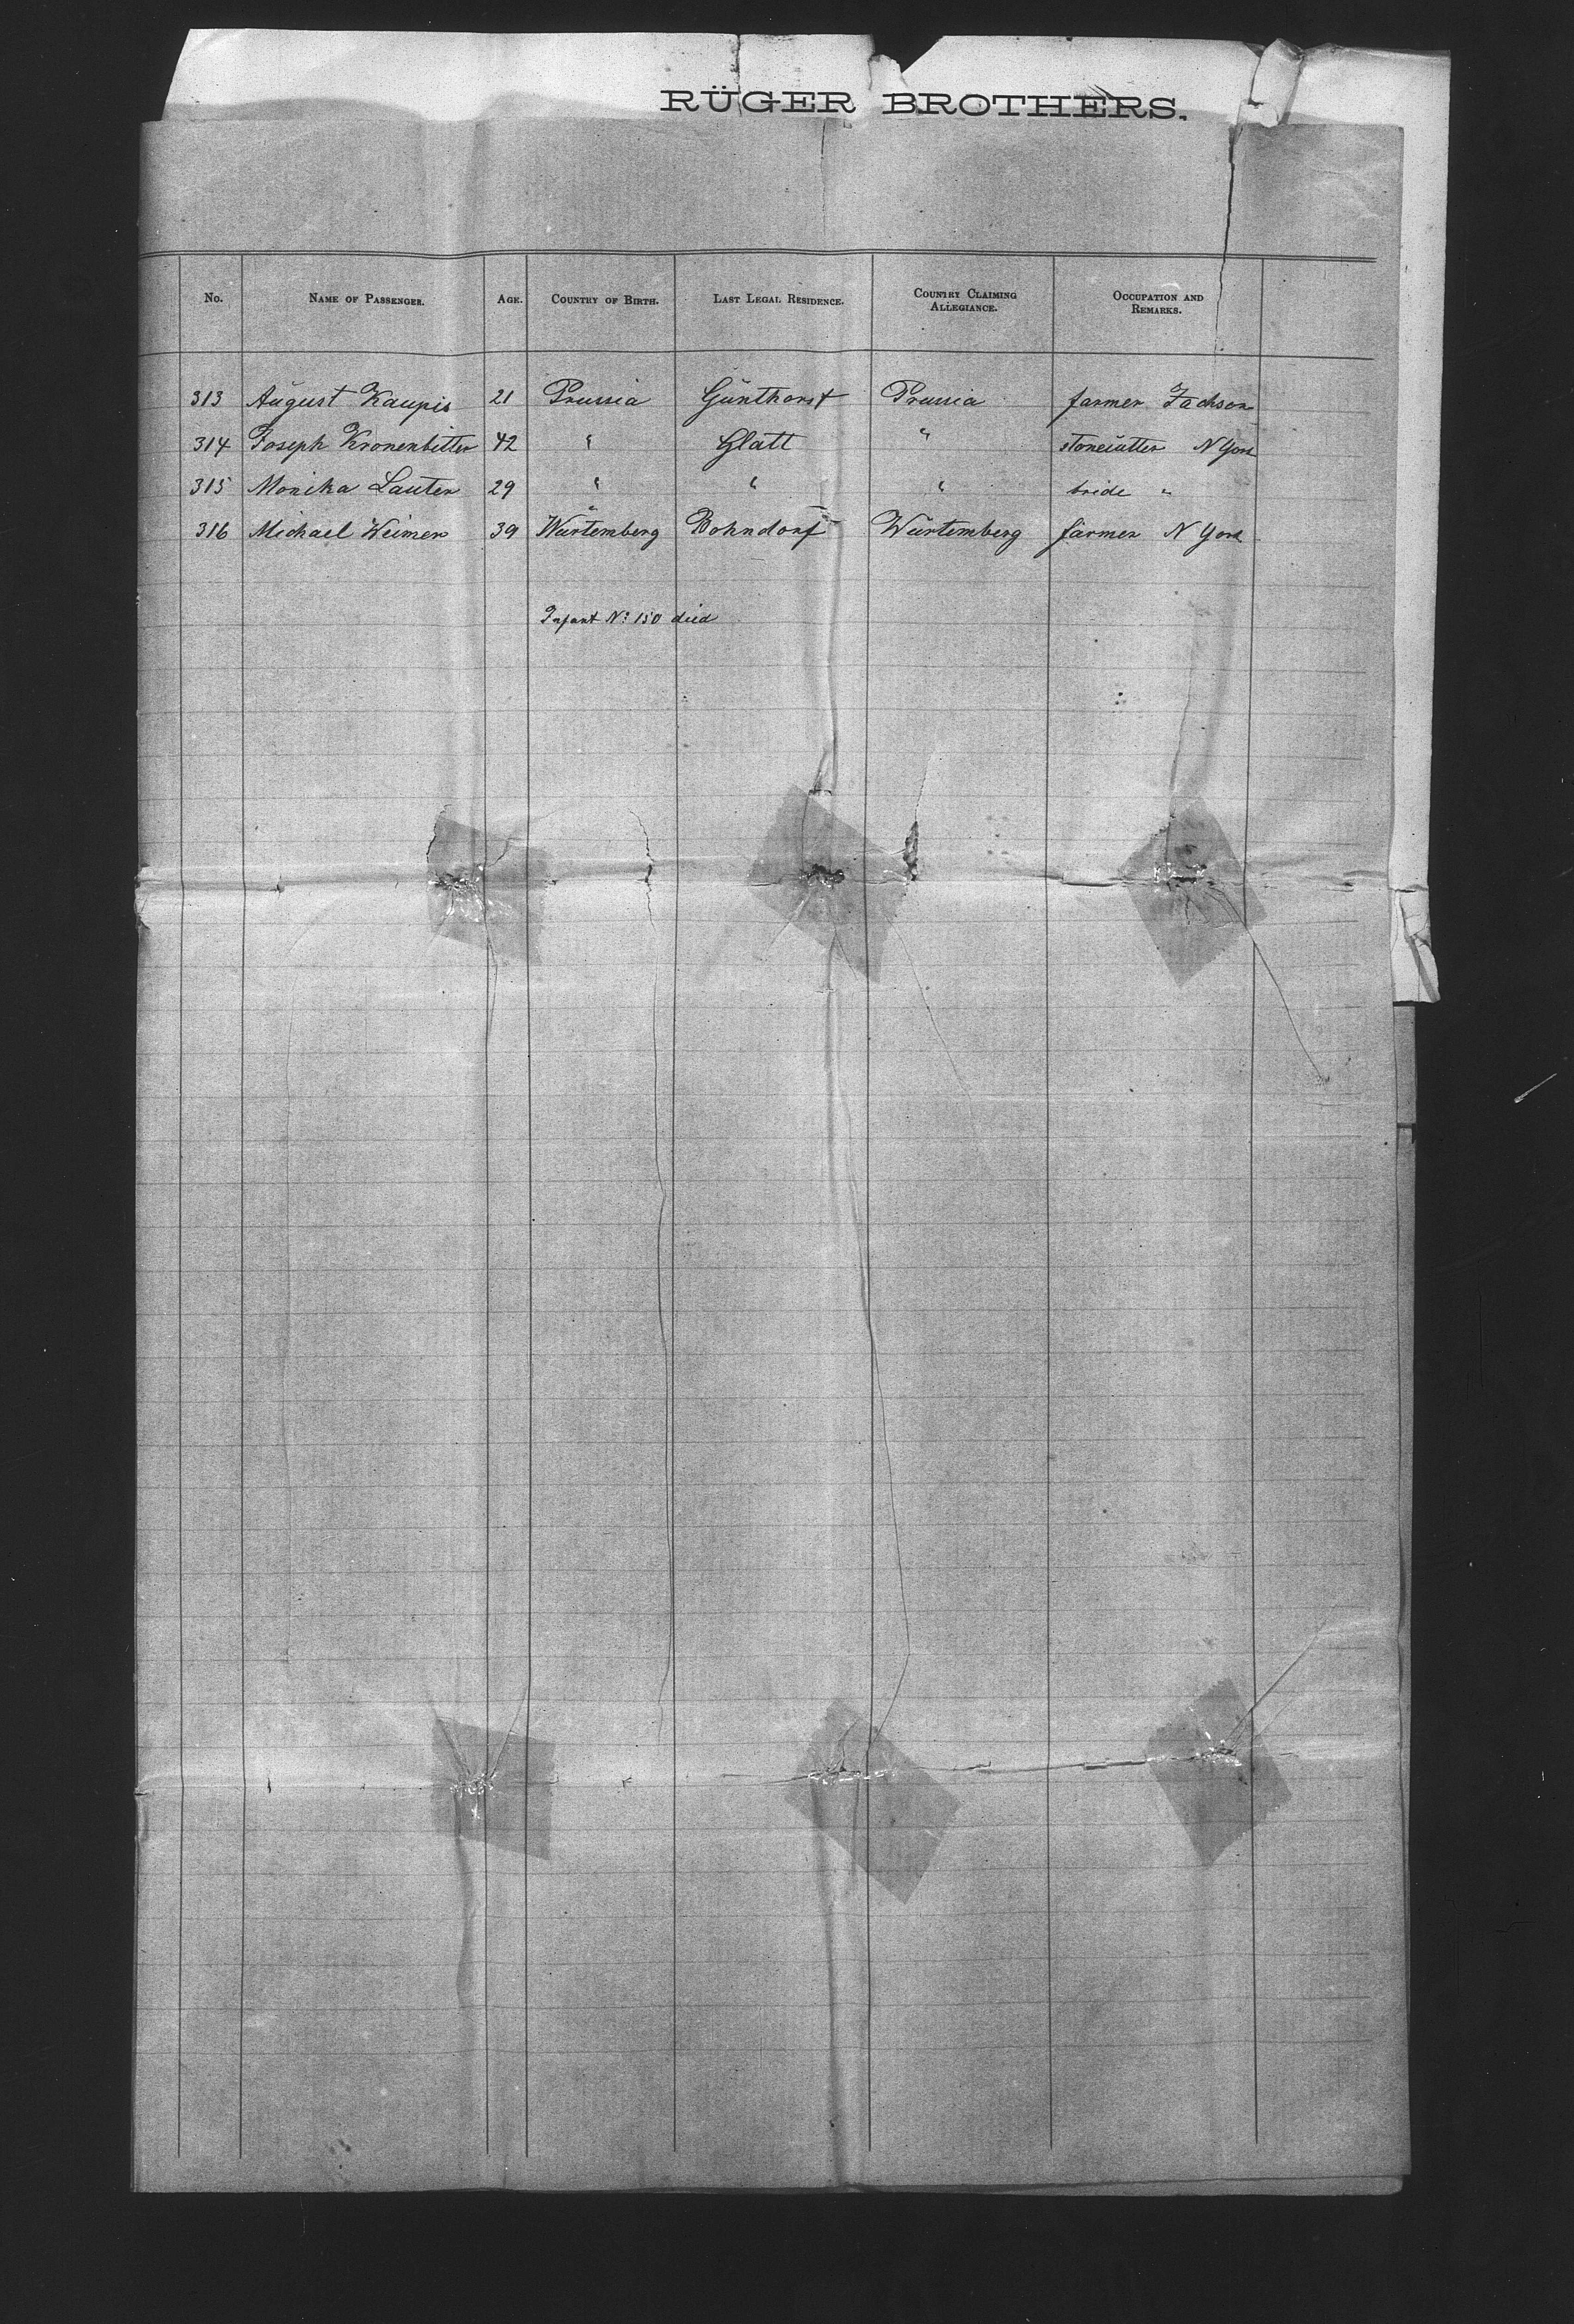 RÜGER BROTHERS.
No. NAME OF PASSENGER. AGE. COUNTRY OF BIRTH. LAST LEGAL RESIDENCE. COUNTRY CLAIMING ALLEGIANCE. OCCUPATION AND REMARKS.
313 August Kaupis 21 Prussia Günthorst Prussia farmer Jackson
314 Joseph Kronenbitter 42 " Glatt " stonecutter N York
315 Monika Lauter 29 " " " bride "
316 Michael Weimer 39 Würtemberg Bohndorf Würtemberg farmer N York
Infant No: 150 died